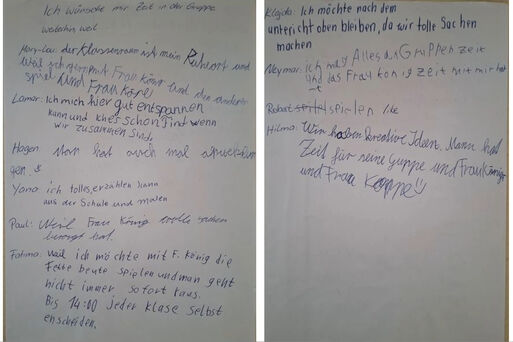 Ich wünsche mir Zeit in der Gruppe
weil
Mary-Lou: der Klassenraum ist mein Ruheort und
weil ich gern mit Frau König und den anderen
spiel und Frau Köppe
Lamar: Ich mich hier gut entspannen
kann und ich es schön find wenn
wir zusammen sind.
Hagen: Man hat auch mal
gen.
Yara: ich tolles erzählen kann
aus der Schule und malen
Paul: Weil Frau König tolle sachen
besorgt hat.
Fatima: weil ich möchte mit F. König die
Fette beute spielen und man geht
nicht immer sofort raus.
Bis 14:00 jeder klase selbst
enscheiden.
Klajdo: Ich möchte nach dem
unterricht oben bleiben, da wir tolle Sachen
machen
Neymar: ich mag Alles an Gruppen zeit
und das Frau König zeit mit mir hat
Robat: spielen
Hilma: Wir haben kreative Ideen. Mann hat
Zeit für seine Guppe und Frau König
und Frau Koppe